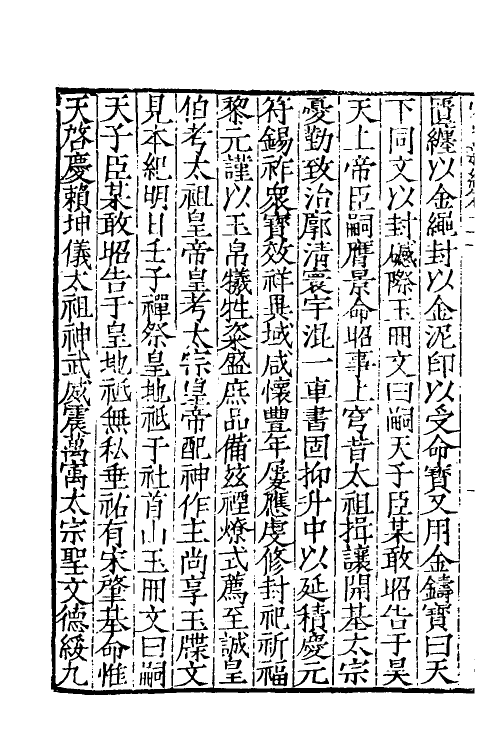 匱纏以金繩封以金泥印以受命寶又用金鑄寶曰天
下同文以封礈際玉冊文曰嗣天子臣某敢昭告于昊
天上帝臣嗣膺景命昭事上穹昔太祖揖讓開基太宗
憂勤致治廓清寰宇混一車書固抑升中以延積慶元
符錫祚衆寶效祥異域咸懷豐年屢應虔修封祀祈福
黎元謹以玉帛犧牲粢盛庶品備兹禋燎式薦至誠皇
伯考太祖皇帝皇考太宗皇帝配神作主尚享玉牒文
見本紀明日壬子禪祭皇地祗于社首山玉冊文曰嗣
天子臣某敢昭告于皇地祗無私垂祐有宋肇基命惟
天啓慶賴坤儀太祖神武威震萬㝢太宗聖文德綏九